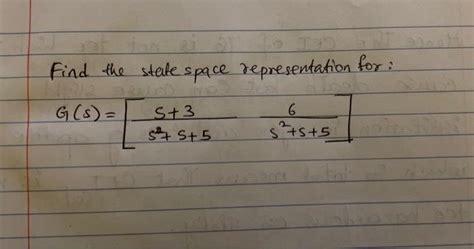 Find the state space representation for:
G(s) = [ s+3 / s²+s+5   6 / s²+s+5 ]